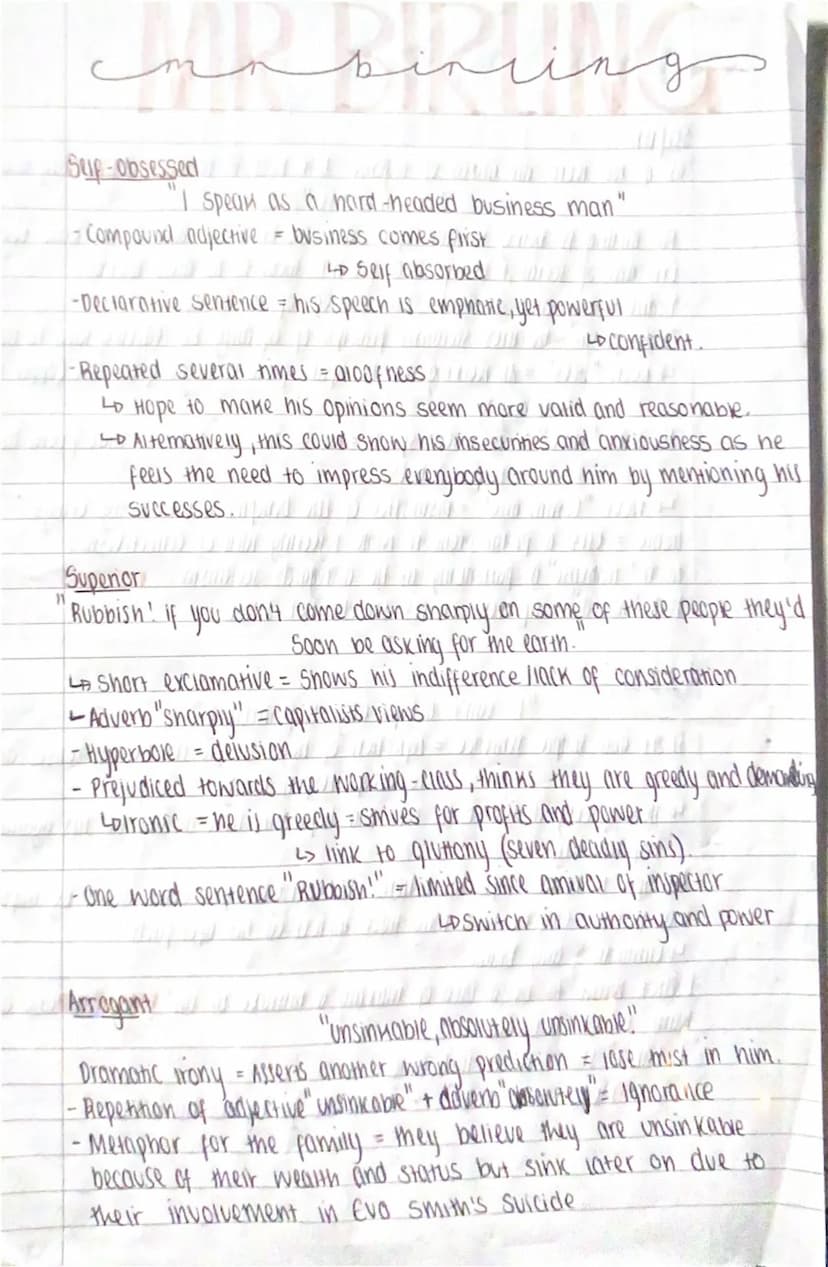 MR BIRLING
mr birling
Self-Obsessed
"I speak as a hard-headed business man"
- Compound adjective = business comes first
↳ Self absorbed
- Declarative sentence = his speech is emphatic, yet powerful
↳ confident.
- Repeated several times = aloofness
↳ Hope to make his opinions seem more valid and reasonable.
↳ Alternatively, this could show his insecurities and anxiousness as he
feels the need to impress everybody around him by mentioning his
successes.
Superior
"Rubbish! if you don't come down sharply on some of these people they'd
soon be asking for the earth."
↳ Short exclamative = Shows his indifference/lack of consideration
↳ Adverb "sharply" = capitalists views
- Hyperbole = delusion
- Prejudiced towards the working-class, thinks they are greedy and demanding
↳ Ironic = he is greedy = strives for profits and power
↳ link to gluttony (seven deadly sins).
- One word sentence "Rubbish!" = limited since arrival of inspector
↳ Switch in authority and power
Arrogant
"unsinkable, absolutely unsinkable."
Dramatic irony = Asserts another wrong prediction = lose trust in him.
- Repetition of adjective "unsinkable" + adverb "absolutely" = Ignorance
- Metaphor for the family = they believe they are unsinkable
because of their wealth and status but sink later on due to
their involvement in Eva Smith's suicide